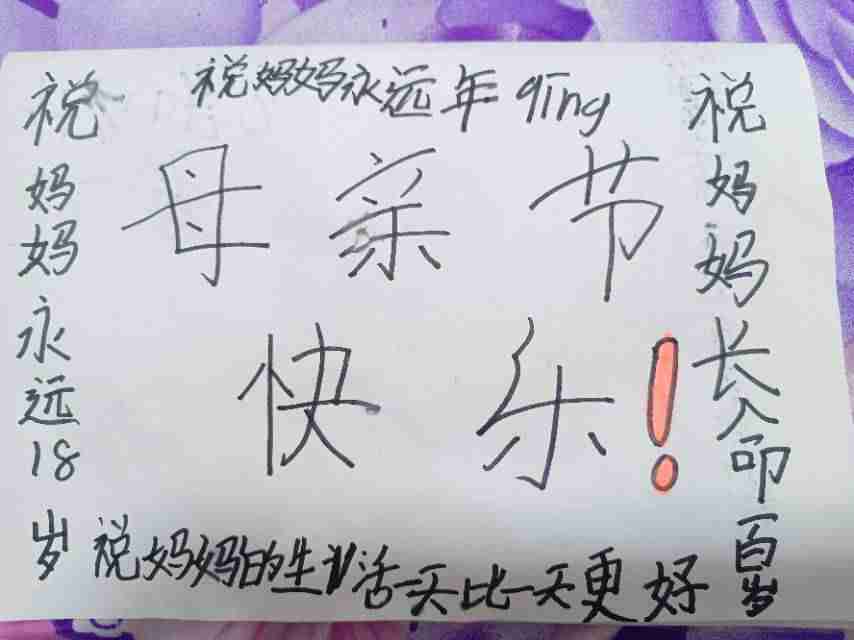 祝妈妈永远年qīng
母亲节
快乐!
祝妈妈永远18岁
祝妈妈长命百岁
祝妈妈的生活一天比一天更好